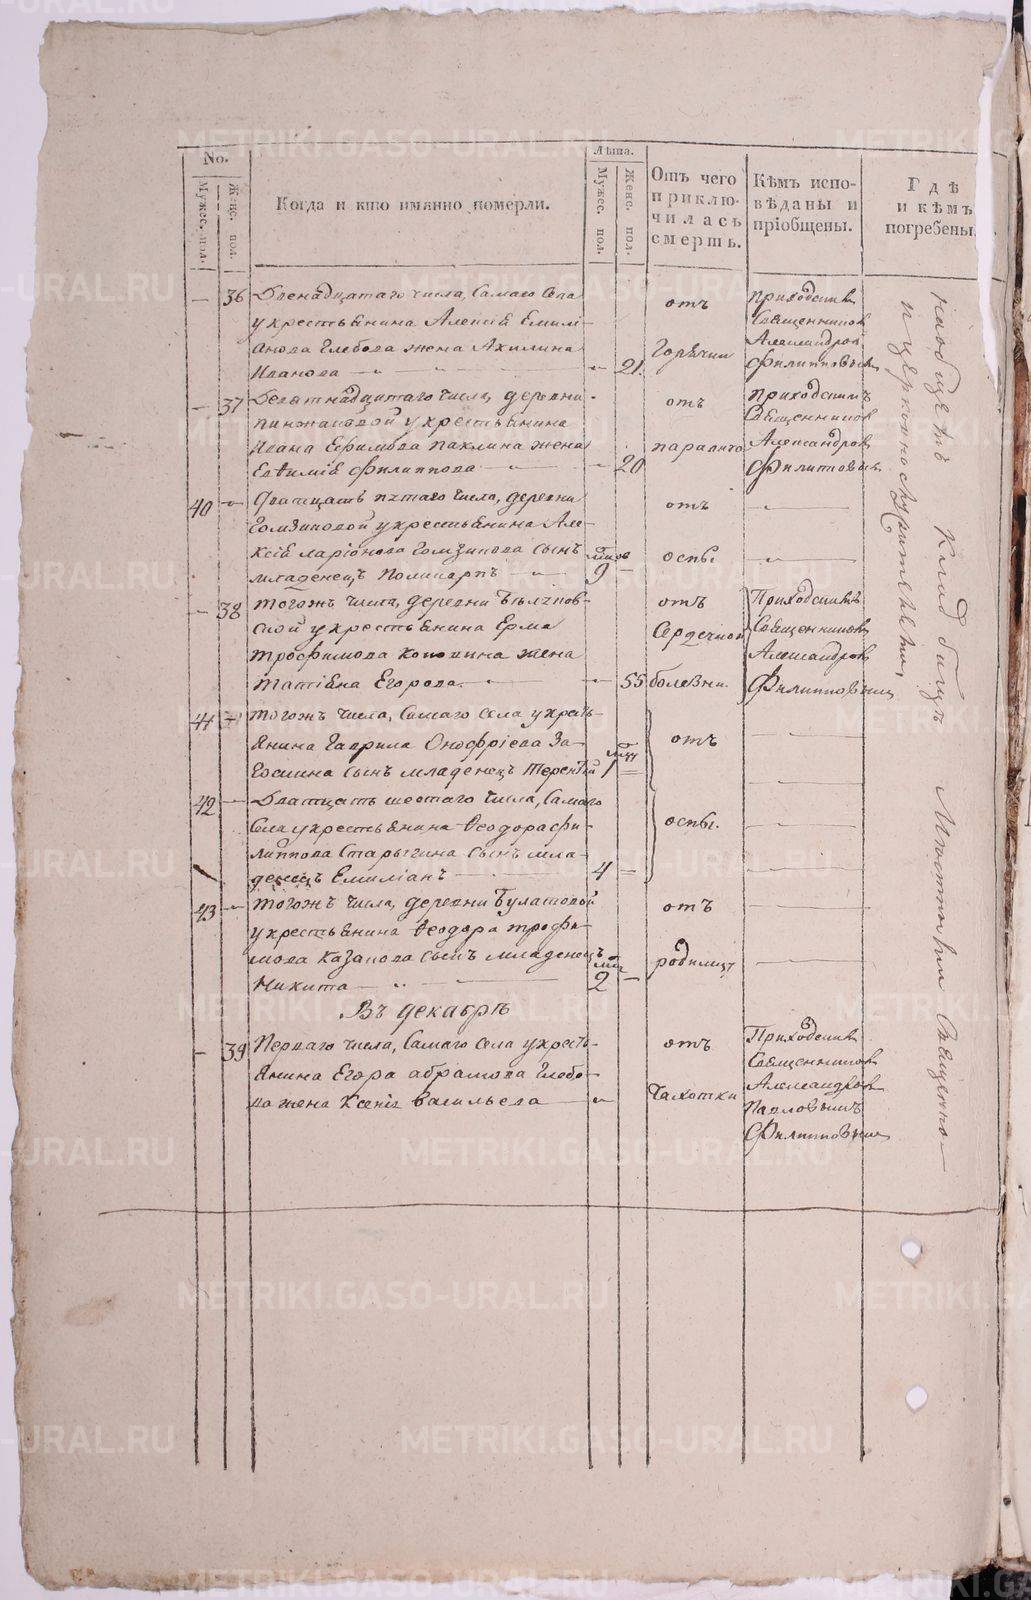 No.
Мужес. пол.
Женс. пол.
Когда и кто имянно померли.
Лѣта.
Мужес. пол.
Женс. пол.
Отъ чего
приклю-
чилась
смерть.
Кѣмъ испо-
вѣданы и
пріобщены.
Гдѣ
и кѣмъ
погребены.
— 36 Двенадцатаго числа, Самаго Села
у крестьянина Алексѣя Емилі-
анова Глебова жена Акилина
Иванова — 21
отъ
Горячки
Приходскимъ
Священником
Александром
Филипповым
— 37 Девятнадцатаго числа, деревни
у крестьянина
Ивана Ефимова Пахлина жена
Евѳимія Филиппова — 20
отъ
паралича
Приходскимъ
Священником
Александром
Филипповым
40 — Дватцать пятаго числа, деревни
Гомзиковой у крестьянина Але-
ксѣя Ларіонова Гомзикова сынъ
младенецъ Поликарпъ 9 —
отъ
оспы
— 38 Тогожъ числа, деревни
у крестьянина Ерма
Трофимова жена
Татіяна Егорова — 55
отъ
Сердечной
болезни.
Приходскимъ
Священником
Александром
Филипповым
41 — Тогожъ числа, Самаго села у кресть-
янина Гаврила Онофріева
сынъ младенец Терентий 1 —
отъ
42 — Дватцать шестаго числа, Самаго
Села у крестьянина Ѳеодора Фи-
липпова Старыгина сынъ мла-
денецъ Емиліанъ — 4 —
оспы.
43 — Тогожъ числа, деревни Булатовой
у крестьянина Ѳеодора Трофи-
мова Казанова сынъ младенецъ
Никита — 2 —
отъ
родимца
Въ декабрѣ
— 39 Перваго числа, Самаго села у кресть-
янина Егора Абрамова Глебо-
ва жена Ксенія Васильева —
отъ
Чахотки
Приходским
Священником
Александром
Павловымъ
Филипповым
на общемъ кладбищѣ Священно-
и церковнослужителями,
METRIKI.GASO-URAL.RU